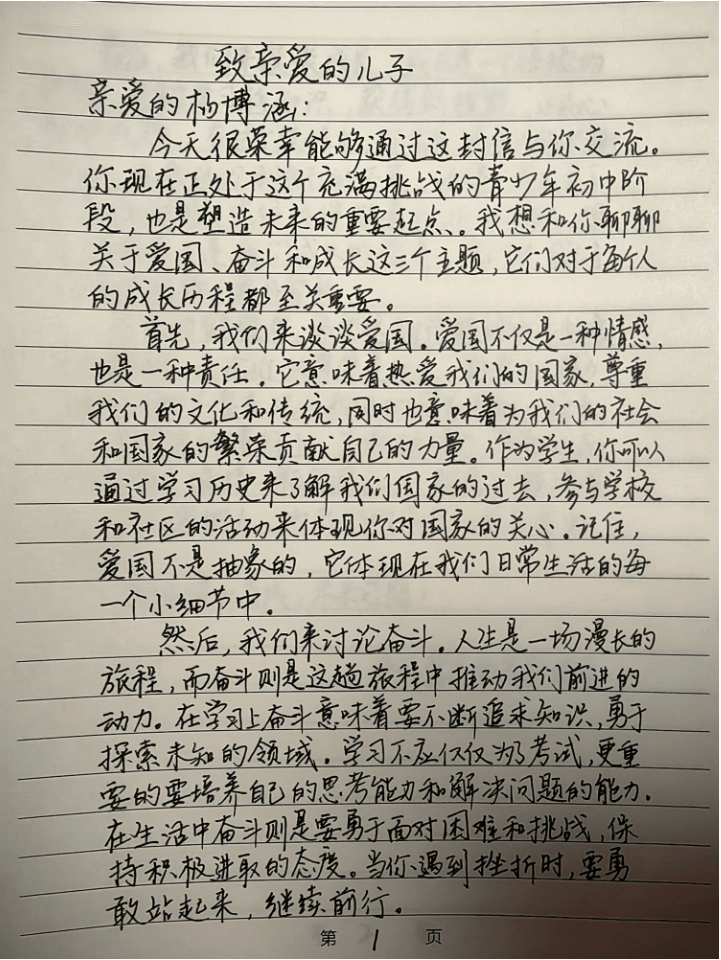 致亲爱的儿子
亲爱的杨博涵：
今天很荣幸能够通过这封信与你交流。
你现在正处于这个充满挑战的青少年初中阶
段，也是塑造未来的重要起点、。我想和你聊聊
关于爱国、奋斗和成长这三个主题，它们对于每个人
的成长历程都至关重要。
首先，我们来谈谈爱国。爱国不仅是一种情感，
也是一种责任。它意味着热爱我们的国家，尊重
我们的文化和传统，同时也意味着为我们的社会
和国家的繁荣贡献自己的力量。作为学生，你可以
通过学习历史来了解我们国家的过去，参与学校
和社区的活动来体现你对国家的关心。记住，
爱国不是抽象的，它体现在我们日常生活的每
一个小细节中。
然后，我们来讨论奋斗。人生是一场漫长的
旅程，而奋斗则是这趟旅程中推动我们前进的
动力。在学习上奋斗意味着要不断追求知识，勇于
探索未知的领域。学习不应仅仅为了考试，更重
要的要培养自己的思考能力和解决问题的能力。
在生活中奋斗则是要勇于面对困难和挑战，保
持积极进取的态度。当你遇到挫折时，要勇
敢站起来，继续前行。
第 1 页